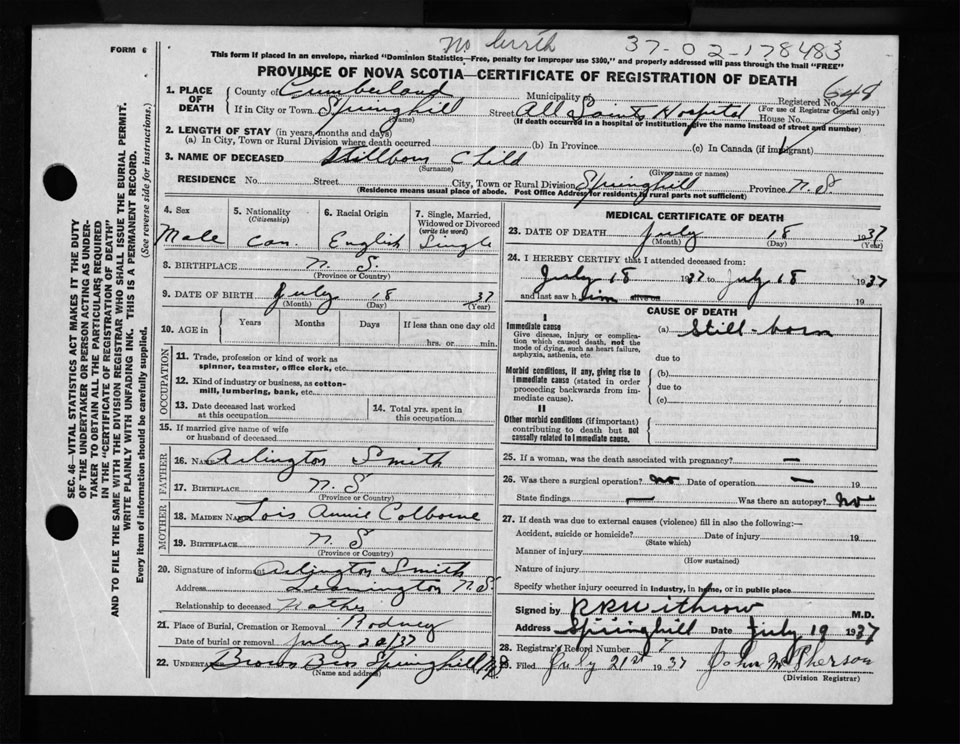 No birth 37-02-178483
FORM 6
This form if placed in an envelope, marked "Dominion Statistics—Free, penalty for improper use $300," and properly addressed will pass through the mail "FREE"
PROVINCE OF NOVA SCOTIA—CERTIFICATE OF REGISTRATION OF DEATH
1. PLACE OF DEATH
County of Cumberland Municipality of Registered No. 648
(For use of Registrar General only)
If in City or Town Springhill Street All Saints Hospital House No.
(Name) (If death occurred in a hospital or institution, give the name instead of street and number)
2. LENGTH OF STAY (in years, months and days)
(a) In City, Town or Rural Division where death occurred (b) In Province (c) In Canada (if immigrant)
3. NAME OF DECEASED Stillborn Child
(Surname) (Given name or names)
RESIDENCE No. Street City, Town or Rural Division Springhill Province N.S
(Residence means usual place of abode. Post Office Address for residents in rural parts not sufficient)
4. Sex Male
5. Nationality (Citizenship) Can.
6. Racial Origin English
7. Single, Married, Widowed or Divorced (write the word) Single
8. BIRTHPLACE N. S.
(Province or Country)
9. DATE OF BIRTH July 18 37
(Month) (Day) (Year)
10. AGE in Years Months Days If less than one day old
hrs. or min.
OCCUPATION
11. Trade, profession or kind of work as
spinner, teamster, office clerk, etc.
12. Kind of industry or business, as cotton-
mill, lumbering, bank, etc.
13. Date deceased last worked
at this occupation
14. Total yrs. spent in
this occupation
15. If married give name of wife
or husband of deceased
FATHER
16. Name Arlington Smith
17. Birthplace N. S
(Province or Country)
MOTHER
18. Maiden Name Lois Annie Colborne
19. Birthplace N. S
(Province or Country)
20. Signature of informant Arlington Smith
Address Leamington N.S.
Relationship to deceased Father
21. Place of Burial, Cremation or Removal Rodney
Date of burial or removal July 20/37
22. Undertaker Brown Bros Springhill N.S
(Name and address)
MEDICAL CERTIFICATE OF DEATH
23. DATE OF DEATH July 18 1937
(Month) (Day) (Year)
24. I HEREBY CERTIFY that I attended deceased from:
July 18 1937 to July 18 1937
and last saw him alive on 19
CAUSE OF DEATH
I
Immediate cause
Give disease, injury or complica-
tion which caused death, not the
mode of dying, such as heart failure,
asphyxia, asthenia, etc.
(a) Still-born
due to
Morbid conditions, if any, giving rise to
immediate cause (stated in order
proceeding backwards from im-
mediate cause).
(b)
due to
(c)
II
Other morbid conditions (if important)
contributing to death but not
causally related to immediate cause.
25. If a woman, was the death associated with pregnancy? —
26. Was there a surgical operation? No Date of operation —
State findings — Was there an autopsy? No
27. If death was due to external causes (violence) fill in also the following:—
Accident, suicide or homicide? Date of injury 19
(State which)
Manner of injury
(How sustained)
Nature of injury
Specify whether injury occurred in industry, in home, or in public place
Signed by R R Withrow M.D.
Address Springhill Date July 19 1937
28. Registrar's Record Number 7
29. Filed July 21st 1937 John McPherson
(Division Registrar)
SEC. 46—VITAL STATISTICS ACT MAKES IT THE DUTY
OF THE UNDERTAKER OR PERSON ACTING AS UNDER-
TAKER TO OBTAIN ALL THE PARTICULARS REQUIRED
IN THE "CERTIFICATE OF REGISTRATION OF DEATH"
AND TO FILE THE SAME WITH THE DIVISION REGISTRAR WHO SHALL ISSUE THE BURIAL PERMIT.
WRITE PLAINLY WITH UNFADING INK. THIS IS A PERMANENT RECORD.
Every item of information should be carefully supplied. (See reverse side for instructions.)